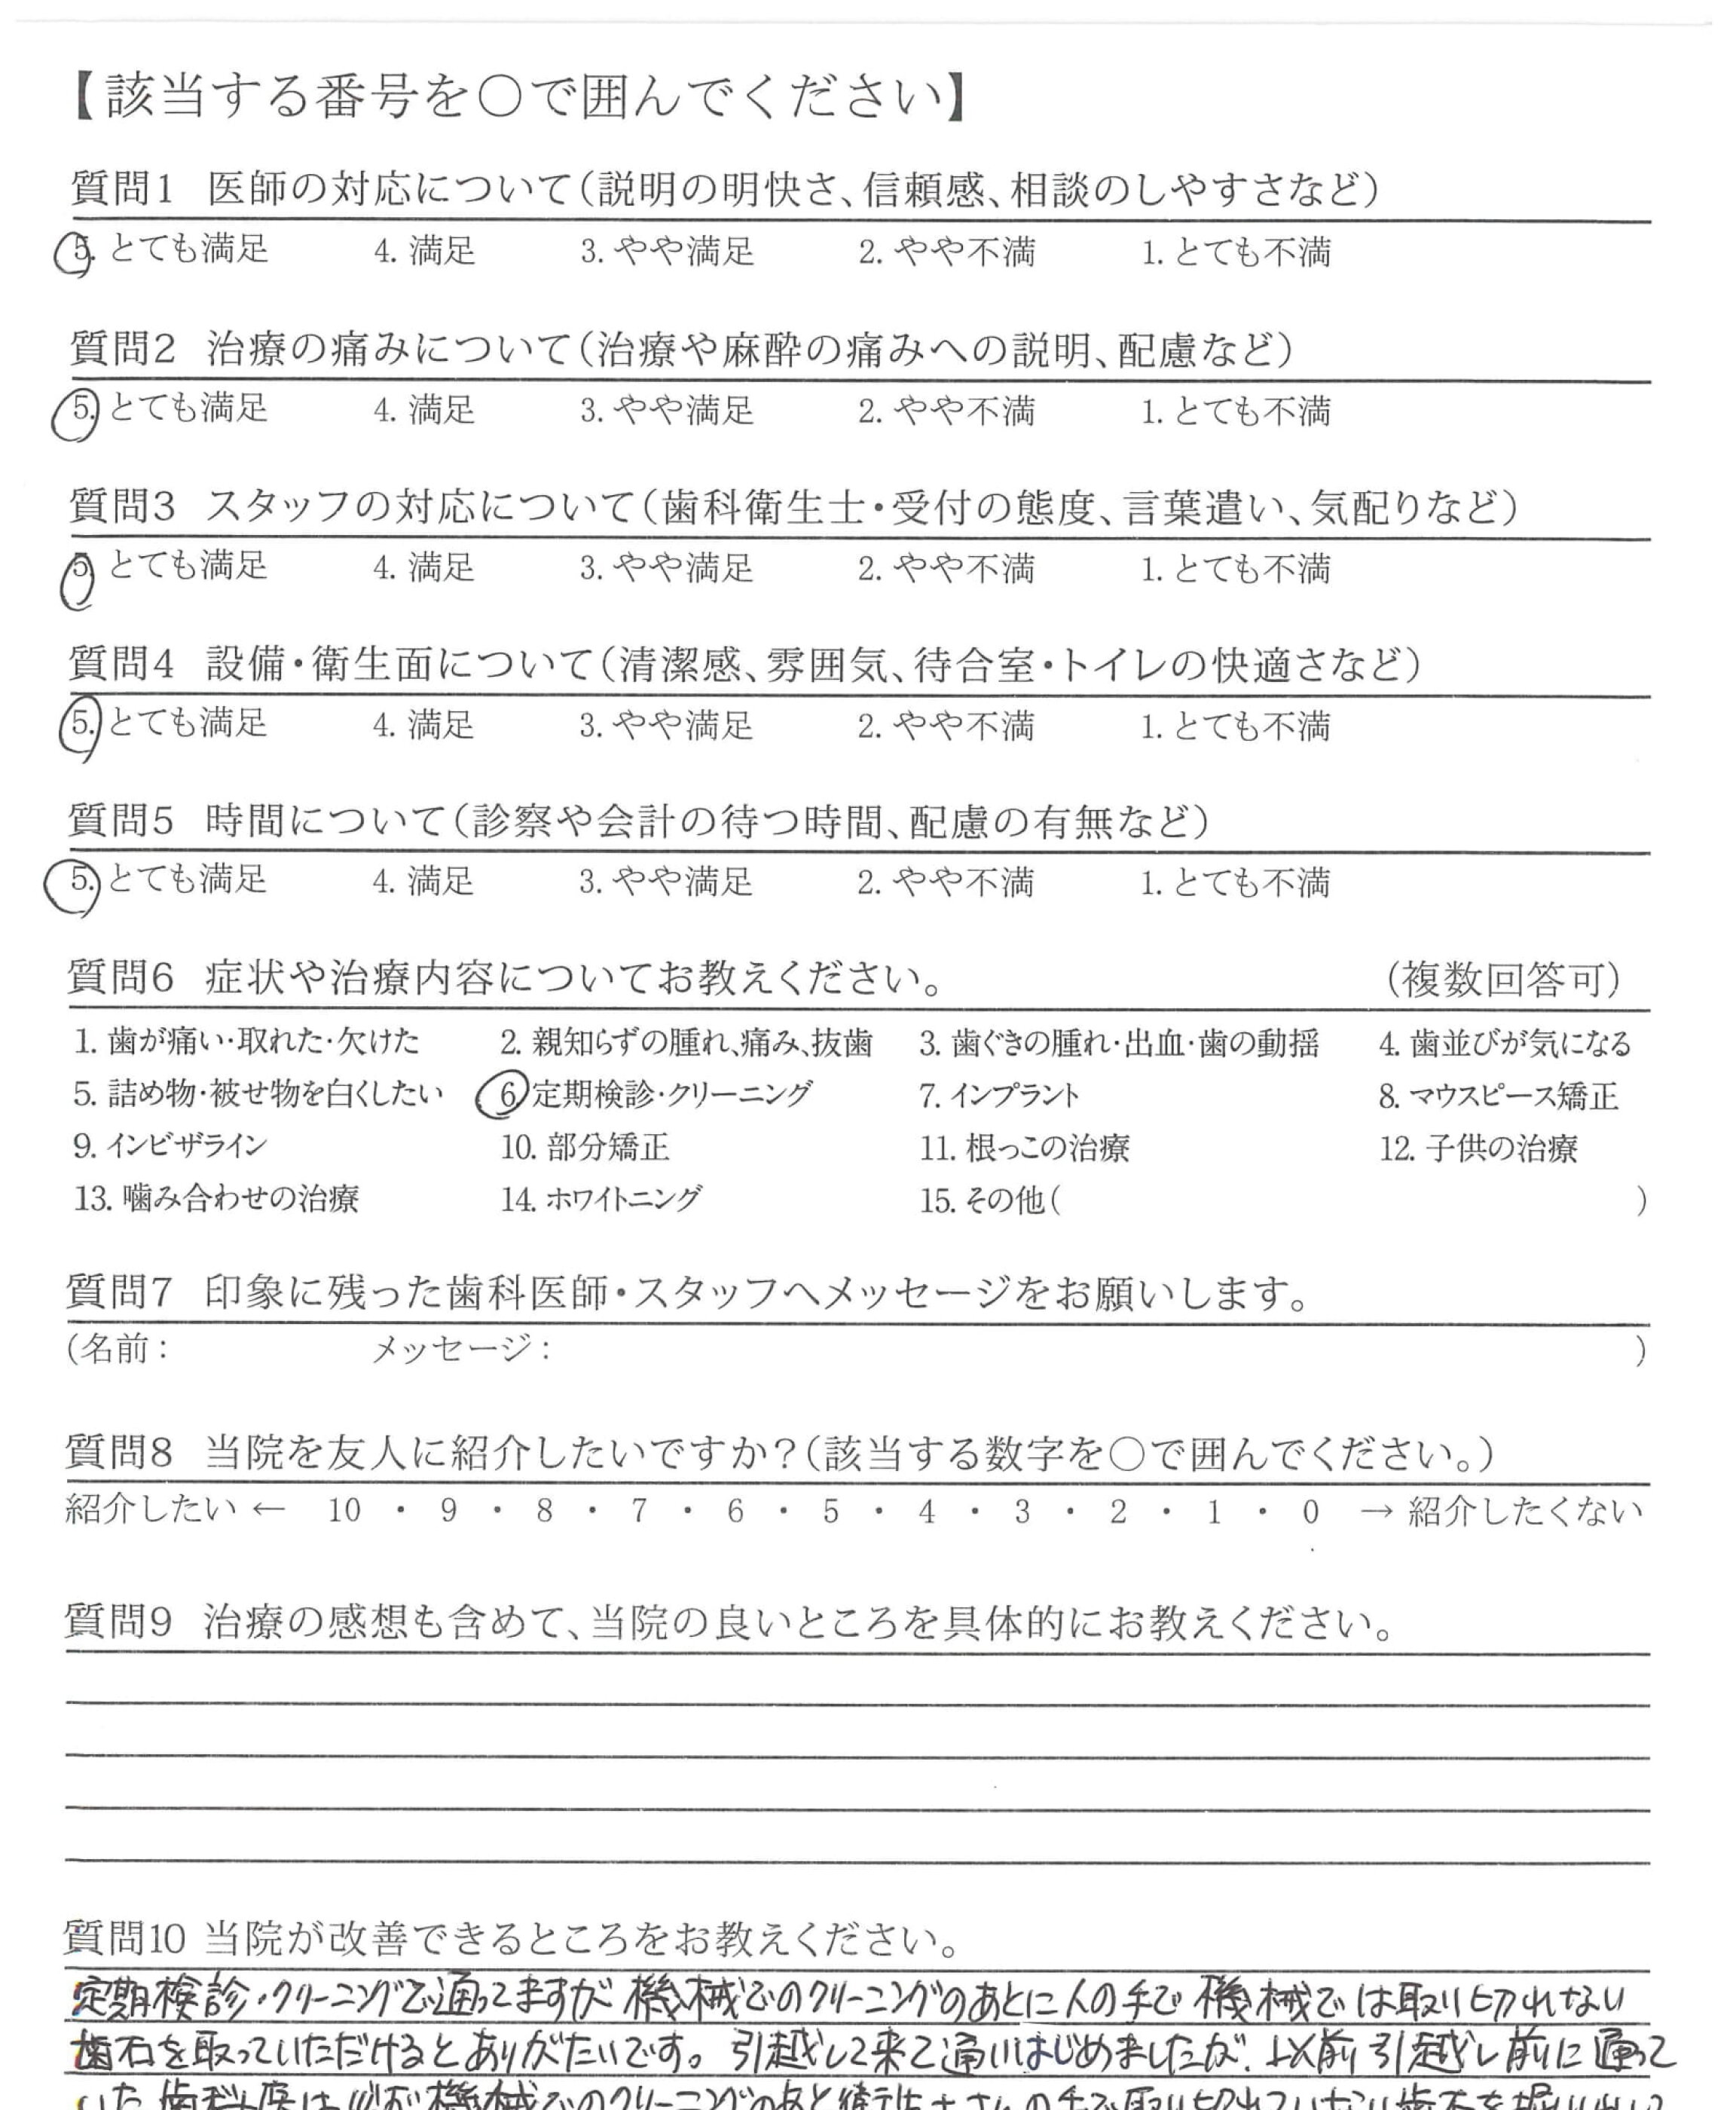 【該当する番号を○で囲んでください】
質問1 医師の対応について(説明の明快さ、信頼感、相談のしやすさなど)
5. とても満足 4. 満足 3. やや満足 2. やや不満 1. とても不満
質問2 治療の痛みについて(治療や麻酔の痛みへの説明、配慮など)
5. とても満足 4. 満足 3. やや満足 2. やや不満 1. とても不満
質問3 スタッフの対応について(歯科衛生士・受付の態度、言葉遣い、気配りなど)
5. とても満足 4. 満足 3. やや満足 2. やや不満 1. とても不満
質問4 設備・衛生面について(清潔感、雰囲気、待合室・トイレの快適さなど)
5. とても満足 4. 満足 3. やや満足 2. やや不満 1. とても不満
質問5 時間について(診察や会計の待つ時間、配慮の有無など)
5. とても満足 4. 満足 3. やや満足 2. やや不満 1. とても不満
質問6 症状や治療内容についてお教えください。 (複数回答可)
1. 歯が痛い・取れた・欠けた 2. 親知らずの腫れ、痛み、抜歯 3. 歯ぐきの腫れ・出血・歯の動揺 4. 歯並びが気になる
5. 詰め物・被せ物を白くしたい 6 定期検診・クリーニング 7. インプラント 8. マウスピース矯正
9. インビザライン 10. 部分矯正 11. 根っこの治療 12. 子供の治療
13. 噛み合わせの治療 14. ホワイトニング 15. その他( )
質問7 印象に残った歯科医師・スタッフへメッセージをお願いします。
(名前: メッセージ: )
質問8 当院を友人に紹介したいですか?(該当する数字を○で囲んでください。)
紹介したい ← 10 ・ 9 ・ 8 ・ 7 ・ 6 ・ 5 ・ 4 ・ 3 ・ 2 ・ 1 ・ 0 → 紹介したくない
質問9 治療の感想も含めて、当院の良いところを具体的にお教えください。
質問10 当院が改善できるところをお教えください。
定期検診・クリーニングで通ってますが 機械でのクリーニングのあとに人の手で 機械では取り切れない
歯石を取っていただけるとありがたいです。引越して来て通いはじめましたが、以前 引越し前に通って
いた歯科医は 必ず機械でのクリーニングのあと衛生士さんの手で取り切れていない歯石を